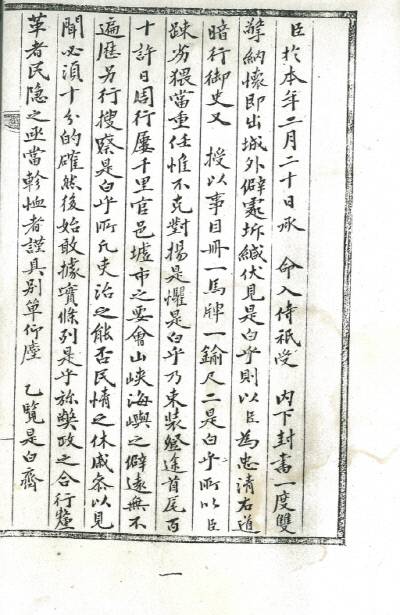 臣於本年二月二十日承 命入侍祇受 內下封書一度雙
擎納懷卽出城外僻處坼緘伏見是白乎則以臣爲忠淸右道
暗行御史又 授以事目冊一馬牌一鍮尺二是白乎所以臣
踈劣猥當重任惟不克對揚是懼是白乎乃束裝登途首尾百
十許日周行屢千里官邑墟市之要會山峽海嶼之僻遠無不
遍歷另行搜察是白乎所凡吏治之能否民情之休戚參以見
聞必須十分的確然後始敢據實條列是乎旀獘政之合行釐
革者民隐之亟當軫恤者謹具別單仰塵 乙覽是白齊
一